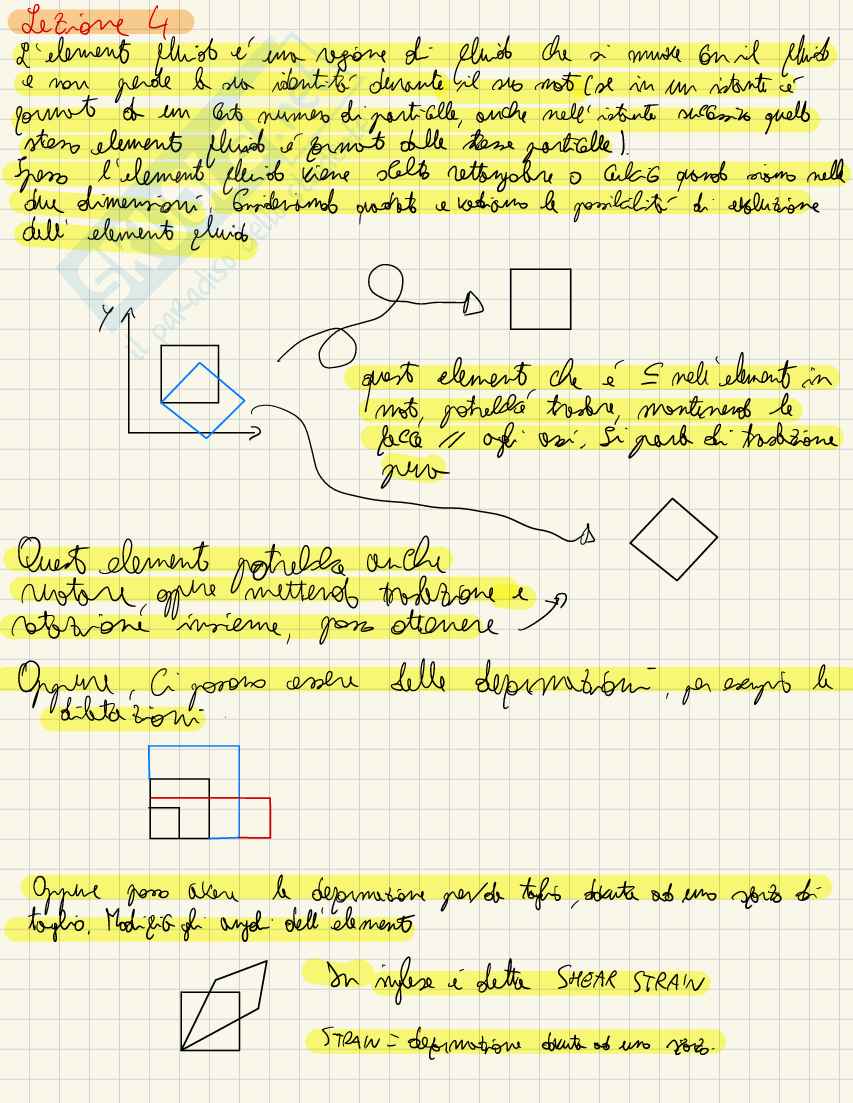 Lezione 4
L'elemento fluido é una regione di fluido che si muove con il fluido
e non perde la sua identitá durante il suo moto (se in un istante é
formato da un certo numero di particelle, anche nell'istante successivo quello
stesso elemento fluido é formato dalle stesse particelle).
Spesso l'elemento fluido viene scelto rettangolare o cubico quando siamo nelle
due dimensioni. Consideriamo quadrato e vediamo le possibilitá di evoluzione
dell'elemento fluido
Y
questo elemento, che é ⊆ nell'elemento in
moto, potrebbe traslare, mantenendo le
facce // agli assi. Si parla di traslazione
pura
Questo elemento potrebbe anche
ruotare oppure mettendo traslazione e
rotazione insieme, posso ottenere
Oppure, ci possono essere delle deformazioni, per esempio le
dilatazioni
Oppure posso avere la deformazione per/da taglio, dovuta ad uno sforzo di
taglio. Modifica gli angoli dell'elemento
In inglese é detta SHEAR STRAIN
STRAIN = deformazione dovuta ad uno sforzo.